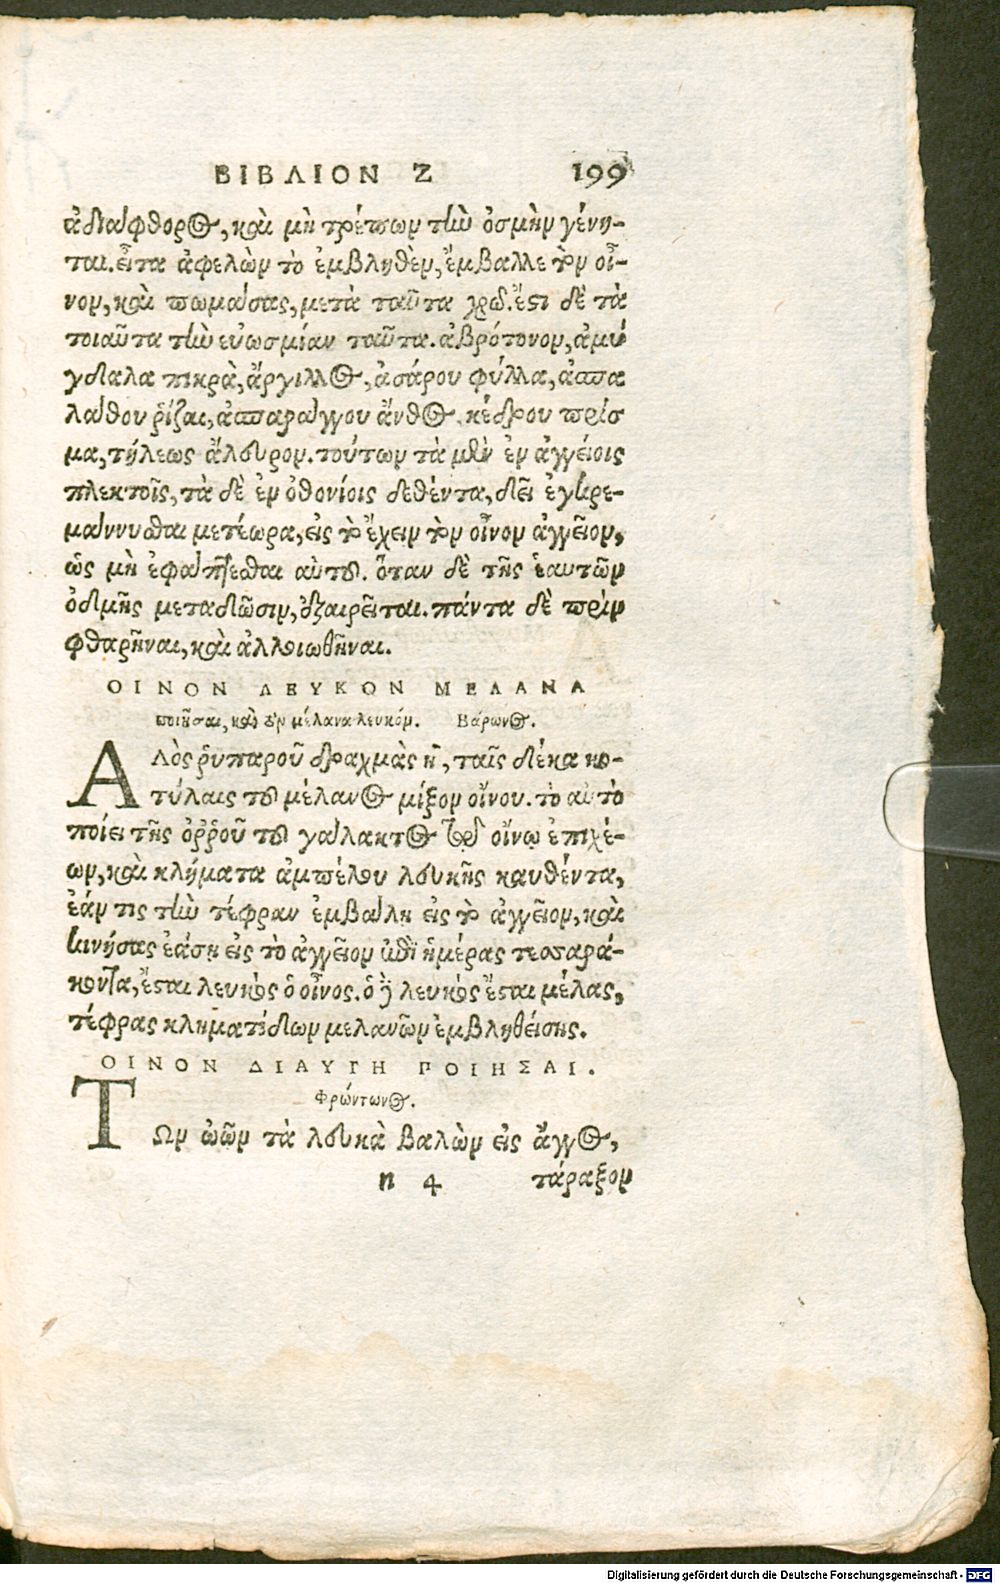 ΒΙΒΛΙΟΝ Ζ 199
ἀδιάφθορος, καὶ μὴ τρέπων τὴν ὀσμὴν γένη-
ται. εἶτα ἀφελὼν τὸ ἐμβληθὲν, ἔμβαλλε τὸν οἶ-
νον, καὶ πωμάσας, μετὰ ταῦτα χρῶ. ἔστι δὲ τὰ
ποιαῦτα τὴν εὐωσμίαν ταῦτα. ἀβρότονον, ἀμύ
γδαλα πικρὰ, ἄργιλλος, ἀσάρου φύλλα, ἀσπα
λάθου ῥίζαι, ἀσπαράγγου ἄνθος, κέδρου πρίσ
μα, τήλεως ἄλευρον. τούτων τὰ μὲν ἐν ἀγγείοις
πλεκτοῖς, τὰ δὲ ἐν ὀθονίοις δεθέντα, δεῖ ἐγκρε-
μάννυσθαι μετέωρα, εἰς τὸ ἔχειν τὸν οἶνον ἀγγεῖον,
ὡς μὴ ἐφάπτεσθαι αὐτοῦ. ὅταν δὲ τῆς ἑαυτῶν
ὀδμῆς μεταδῶσιν, ἐξαιρεῖται. πάντα δὲ πρὶν
φθαρῆναι, καὶ ἀλλοιωθῆναι.
ΟΙΝΟΝ ΛΕΥΚΟΝ ΜΕΛΑΝΑ
ποιῆσαι, καὶ τὸν μέλανα λευκόν. Βάρωνος.
Ἁλὸς ῥυπαροῦ δραχμὰς η, ταῖς δέκα κο-
τύλαις τοῦ μέλανος μίξον οἴνου. τὸ αὐτὸ
ποίει τῆς ὀῤῥοῦ τοῦ γάλακτος τῷ οἴνῳ ἐπιχέ-
ων, καὶ κλήματα ἀμπέλου λευκῆς καυθέντα,
ἐάν τις τὴν τέφραν ἐμβάλη εἰς τὸ ἀγγεῖον, καὶ
κινήσας ἐάσῃ εἰς τὸ ἀγγεῖον ἐπὶ ἡμέρας τεσσαρά-
κοντα, ἔσται λευκὸς ὁ οἶνος. ὁ δὲ λευκὸς ἔσται μέλας,
τέφρας κληματίδων μελανῶν ἐμβληθείσης.
ΟΙΝΟΝ ΔΙΑΥΓΗ ΠΟΙΗΣΑΙ.
Φρόντωνος.
ΤΩν ὠῶν τὰ λευκὰ βαλὼν εἰς ἄγγος,
n 4 τάραξον
Digitalisierung gefördert durch die Deutsche Forschungsgemeinschaft - DFG